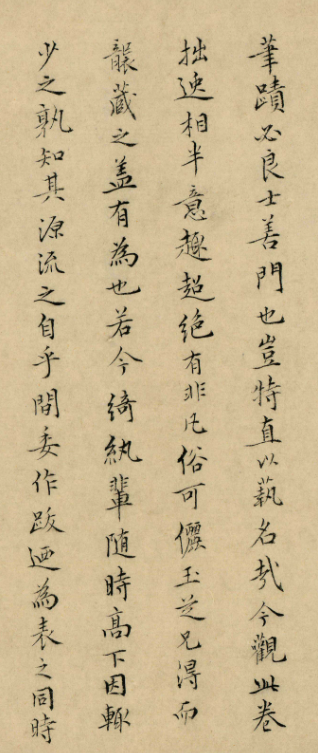 筆蹟必良士善門也豈特直以執名哉今觀此卷
拙速相半意趣超絕有非凡俗可儷玉芝兄得而
襲藏之盖有為也若今綺紈輩随時髙下因輙
少之孰知其源流之自乎間委作跋迺為表之同時